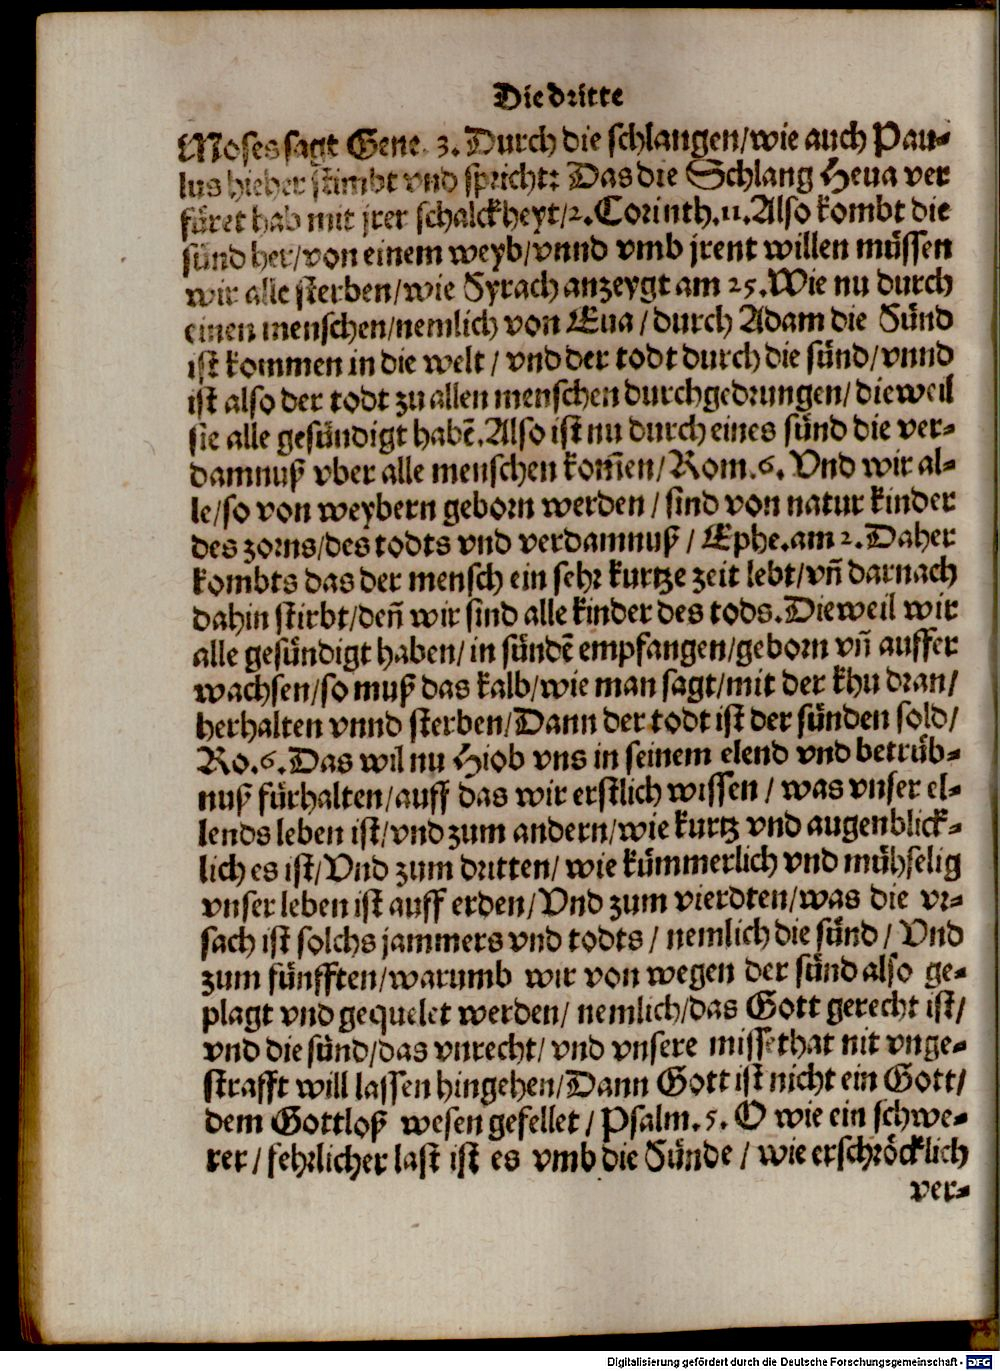 Die dritte
Moses sagt Gene. 3. Durch die schlangen/wie auch Pau-
lus hieher stimbt vnd spricht: Das die Schlang Heua ver
füret hab mit jrer schalckheyt/2. Corinth. 11. Also kombt die
sünd her/von einem weyb/vnnd vmb jrent willen müssen
wir alle sterben/wie Syrach anzeygt am 25. Wie nu durch
einen menschen/nemlich von Eua/durch Adam die Sünd
ist kommen in die welt/vnd der todt durch die sünd/vnnd
ist also der todt zu allen menschen durchgedrungen/dieweil
sie alle gesündigt habē. Also ist nu durch eines sünd die ver-
damnuß vber alle menschen kom̄en/Rom. 6. Vnd wir al-
le/so von weybern geborn werden/sind von natur kinder
des zorns/des todts vnd verdamnuß/Ephe. am 2. Daher
kombts das der mensch ein sehr kurtze zeit lebt/vn̄ darnach
dahin stirbt/den̄ wir sind alle kinder des tods. Dieweil wir
alle gesündigt haben/in sündē empfangen/geborn vn̄ auffer
wachsen/so muß das kalb/wie man sagt/mit der khu dran/
herhalten vnnd sterben/Dann der todt ist der sünden sold/
Ro. 6. Das wil nu Hiob vns in seinem elend vnd betrüb-
nuß fürhalten/auff das wir erstlich wissen/was vnser el-
lends leben ist/vnd zum andern/wie kurtz vnd augenblick-
lich es ist/Vnd zum dritten/wie kümmerlich vnd mühselig
vnser leben ist auff erden/Vnd zum vierdten/was die vr-
sach ist solchs jammers vnd todts/nemlich die sünd/Vnd
zum fünfften/warumb wir von wegen der sünd also ge-
plagt vnd gequelet werden/nemlich/das Gott gerecht ist/
vnd die sünd/das vnrecht/vnd vnsere missethat nit vnge-
strafft will lassen hingehen/Dann Gott ist nicht ein Gott/
dem Gottloß wesen gefellet/Psalm. 5. O wie ein schwe-
rer/fehrlicher last ist es vmb die Sünde/wie erschröcklich
ver-
Digitalisierung gefördert durch die Deutsche Forschungsgemeinschaft - DFG